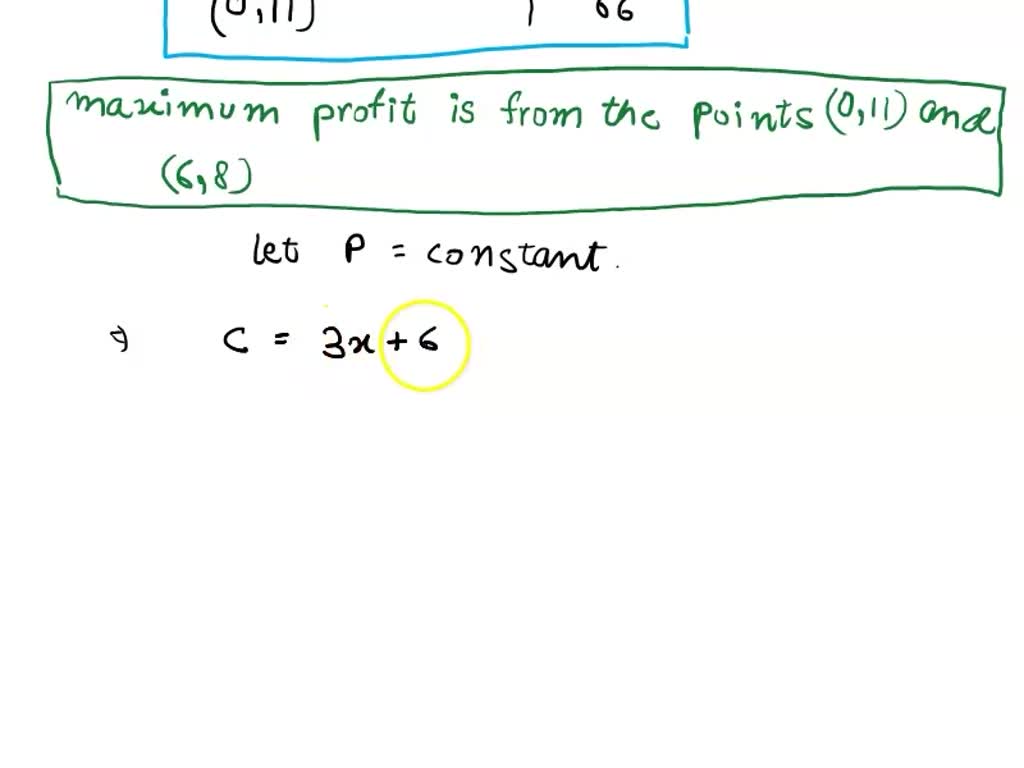 (0,11) | 66
maximum profit is from the points (0,11) and
(6,8)
let P = constant.
⇒ C = 3x + 6